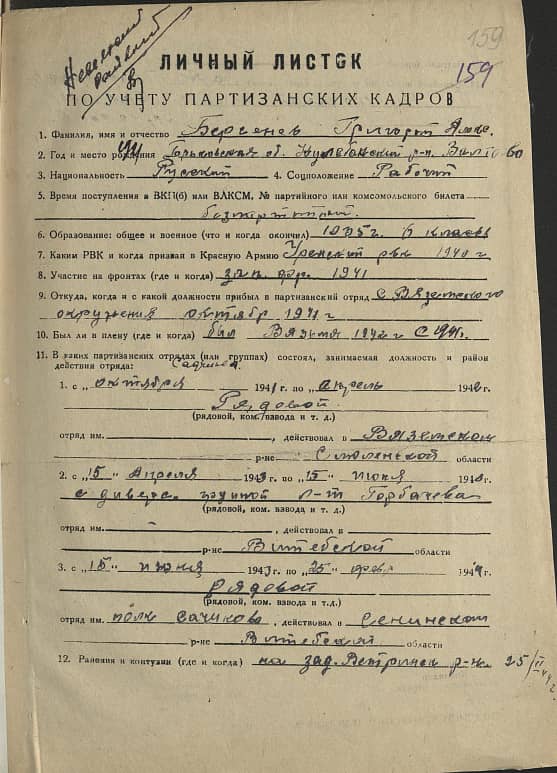 159
159
ЛИЧНЫЙ ЛИСТОК
ПО УЧЕТУ ПАРТИЗАНСКИХ КАДРОВ
1. Фамилия, имя и отчество Берсенев Григорий Алекс.
2. Год и место рождения Горьковская об. р-н.
3. Национальность Русский 4. Соцположение Рабочий
5. Время поступления в ВКП(б) или ВЛКСМ, № партийного или комсомольского билета
беспартийный.
6. Образование: общее и военное (что и когда окончил) 1935 г. 6 классов
7. Каким РВК и когда призван в Красную Армию Уренский рвк 1940 г
8. Участие на фронтах (где и когда) зап. фр. 1941
9. Откуда, когда и с какой должности прибыл в партизанский отряд с Вяземского
окружения октябр 1941 г
10. Был ли в плену (где и когда) был Вязьма 1942 г с
11. В каких партизанских отрядах (или группах) состоял, занимаемая должность и район
действия отряда:
1. с „ октября 1941 г. по „ апрель 1942 г.
Рядовой.
(рядовой, ком. взвода и т. д.)
отряд им. , действовал в Вяземском
р-не Смоленской области
2. с „15“ Апреля 1943 г. по „15“ июня 1943 г.
с диверс. группой л-т Горбачева
(рядовой, ком. взвода и т. д.)
отряд им. - , действовал в
р-не Витебской области
3. с „15“ июня 1943 г. по „25“ февр 1944 г.
рядовой
(рядовой, ком. взвода и т. д.)
отряд им. полк Садчикова, действовал в Сенинском
р-не Витебской области
12. Ранения и контузии (где и когда) на зад. Ветринск р-не 25/II 44 г.